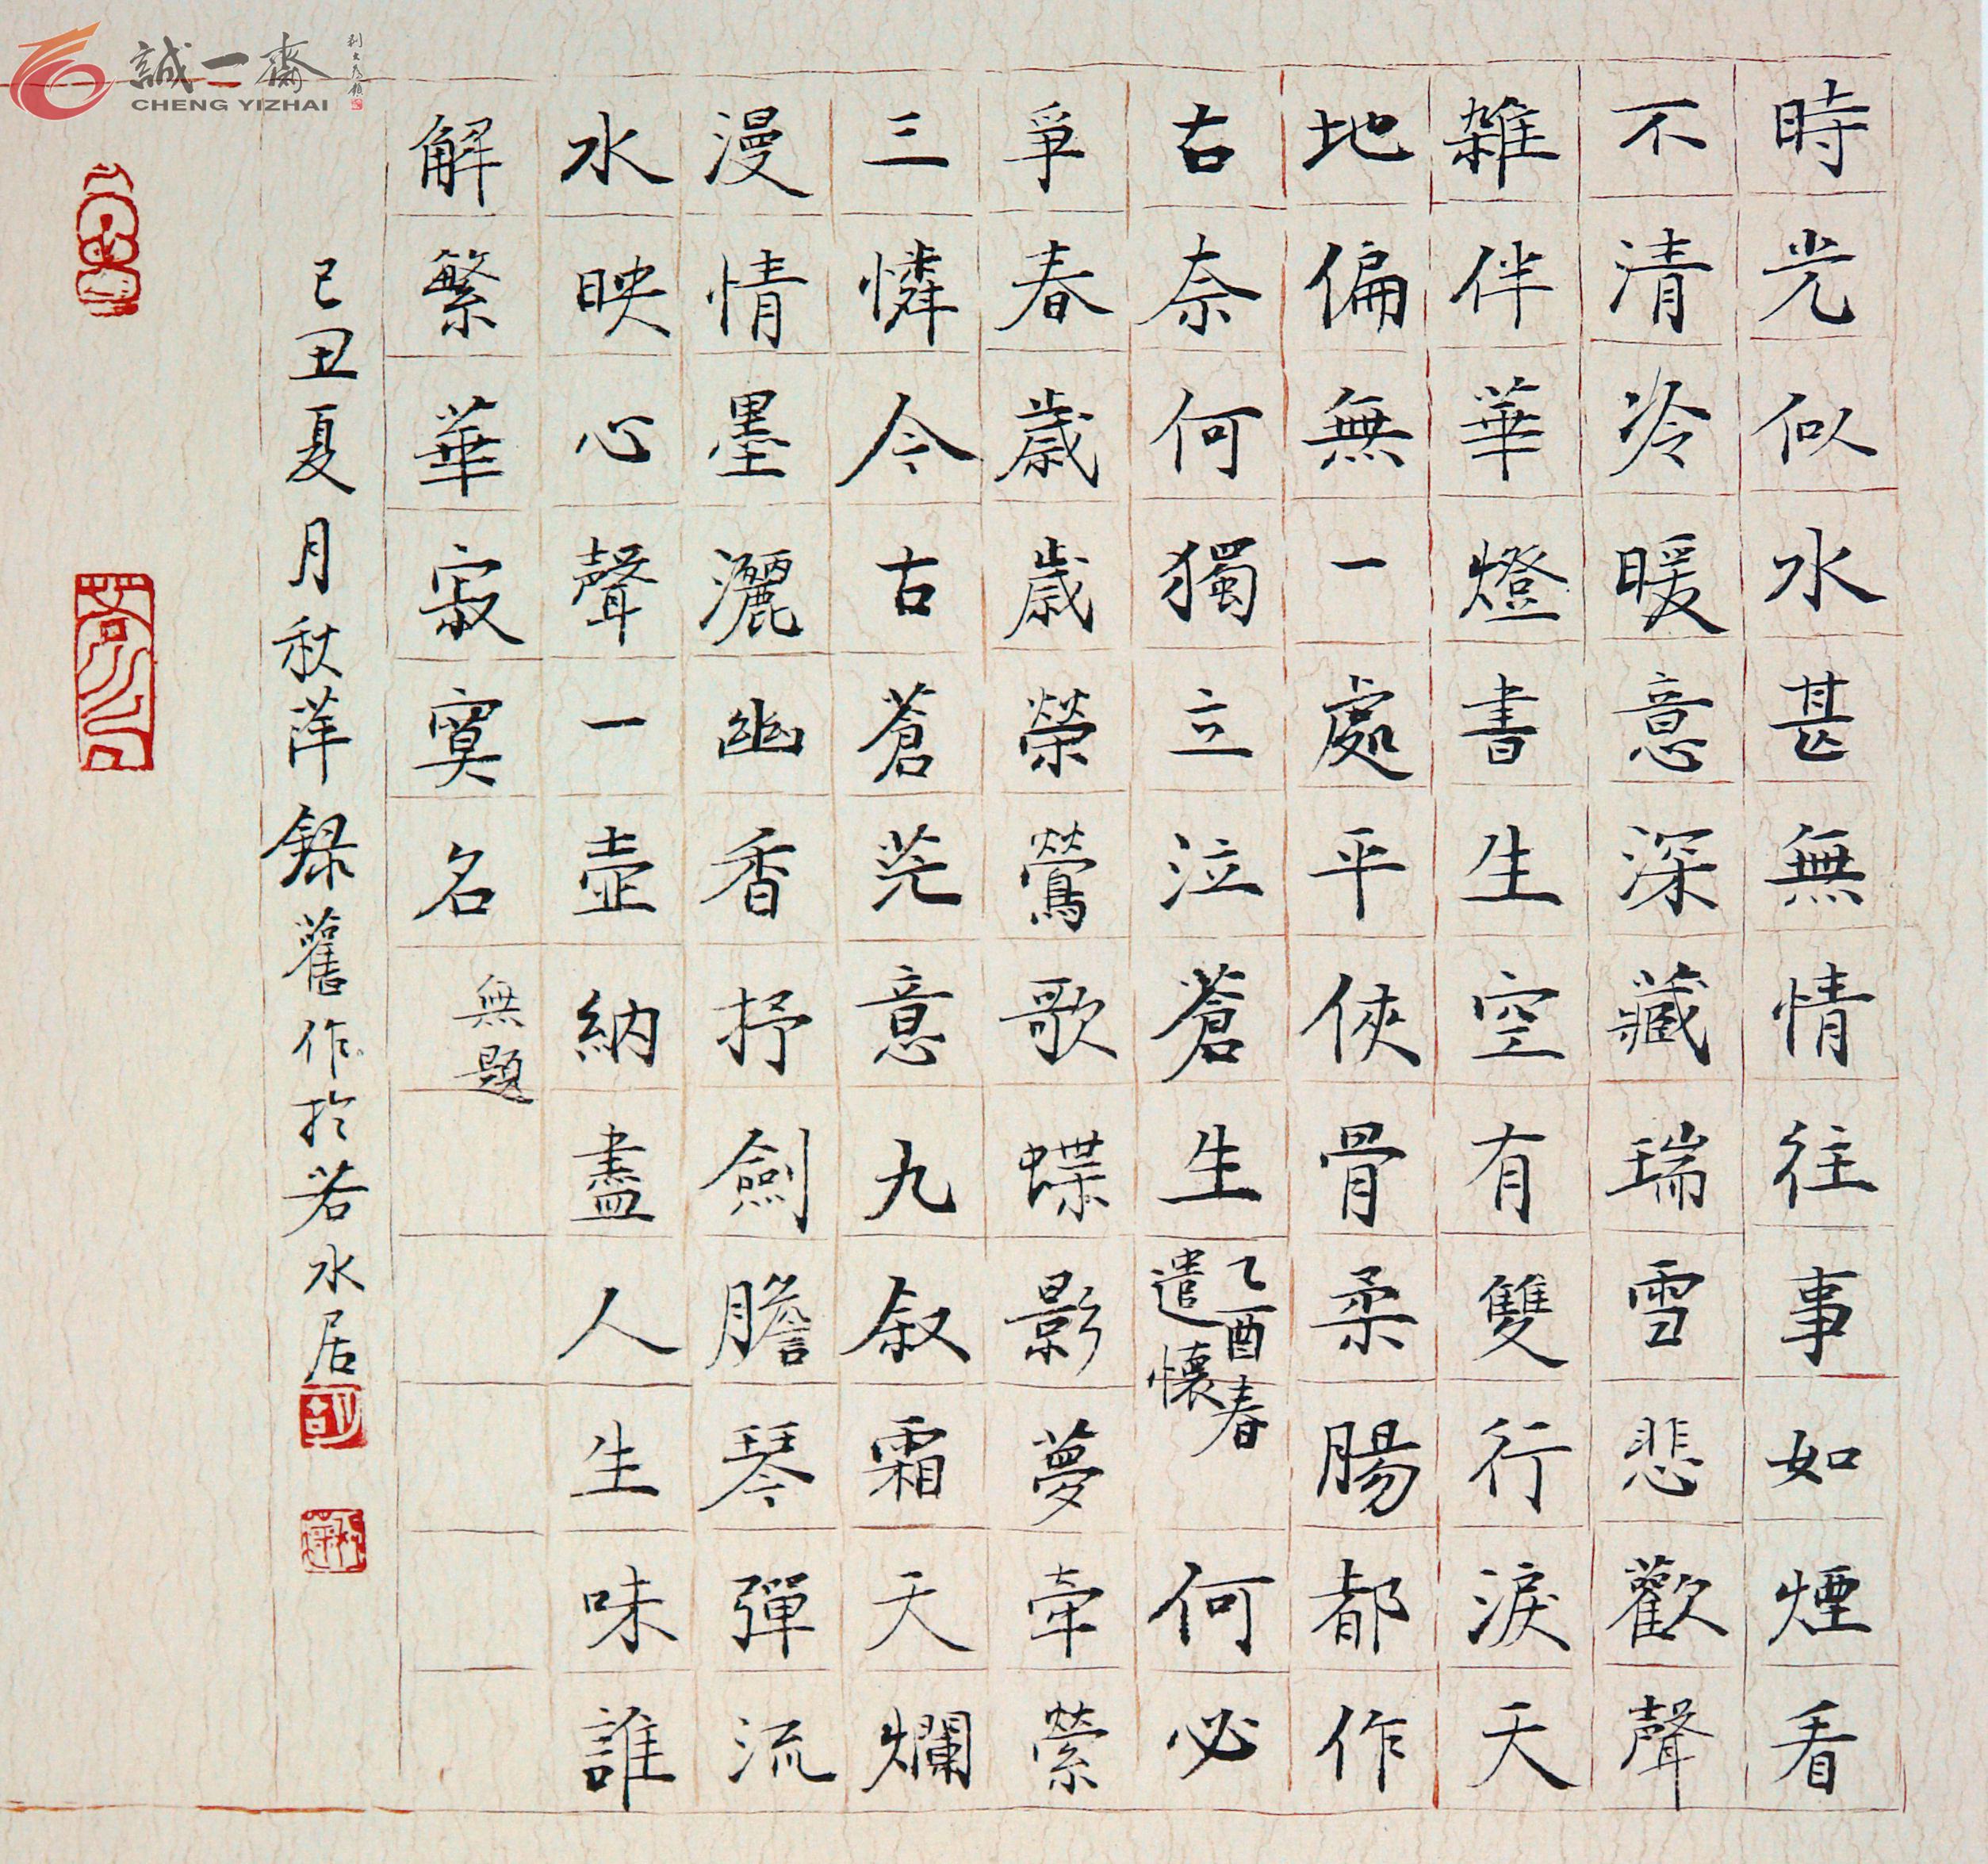 時光似水甚無情往事如煙看
不清冷暖意深藏瑞雪悲歡聲
雜伴華燈書生空有雙行淚天
地偏無一處平俠骨柔腸都作
古奈何獨立泣蒼生乙酉春
遣懷
何必
爭春歲歲榮鶯歌蝶影夢牽縈
三憐今古蒼茫意九叙霜天爛
漫情墨灑幽香抒劍膽琴彈流
水映心聲一壺納盡人生味誰
解繁華寂寞名無題
己丑夏月秋萍録舊作於若水居
誠一齋
CHENG YIZHAI